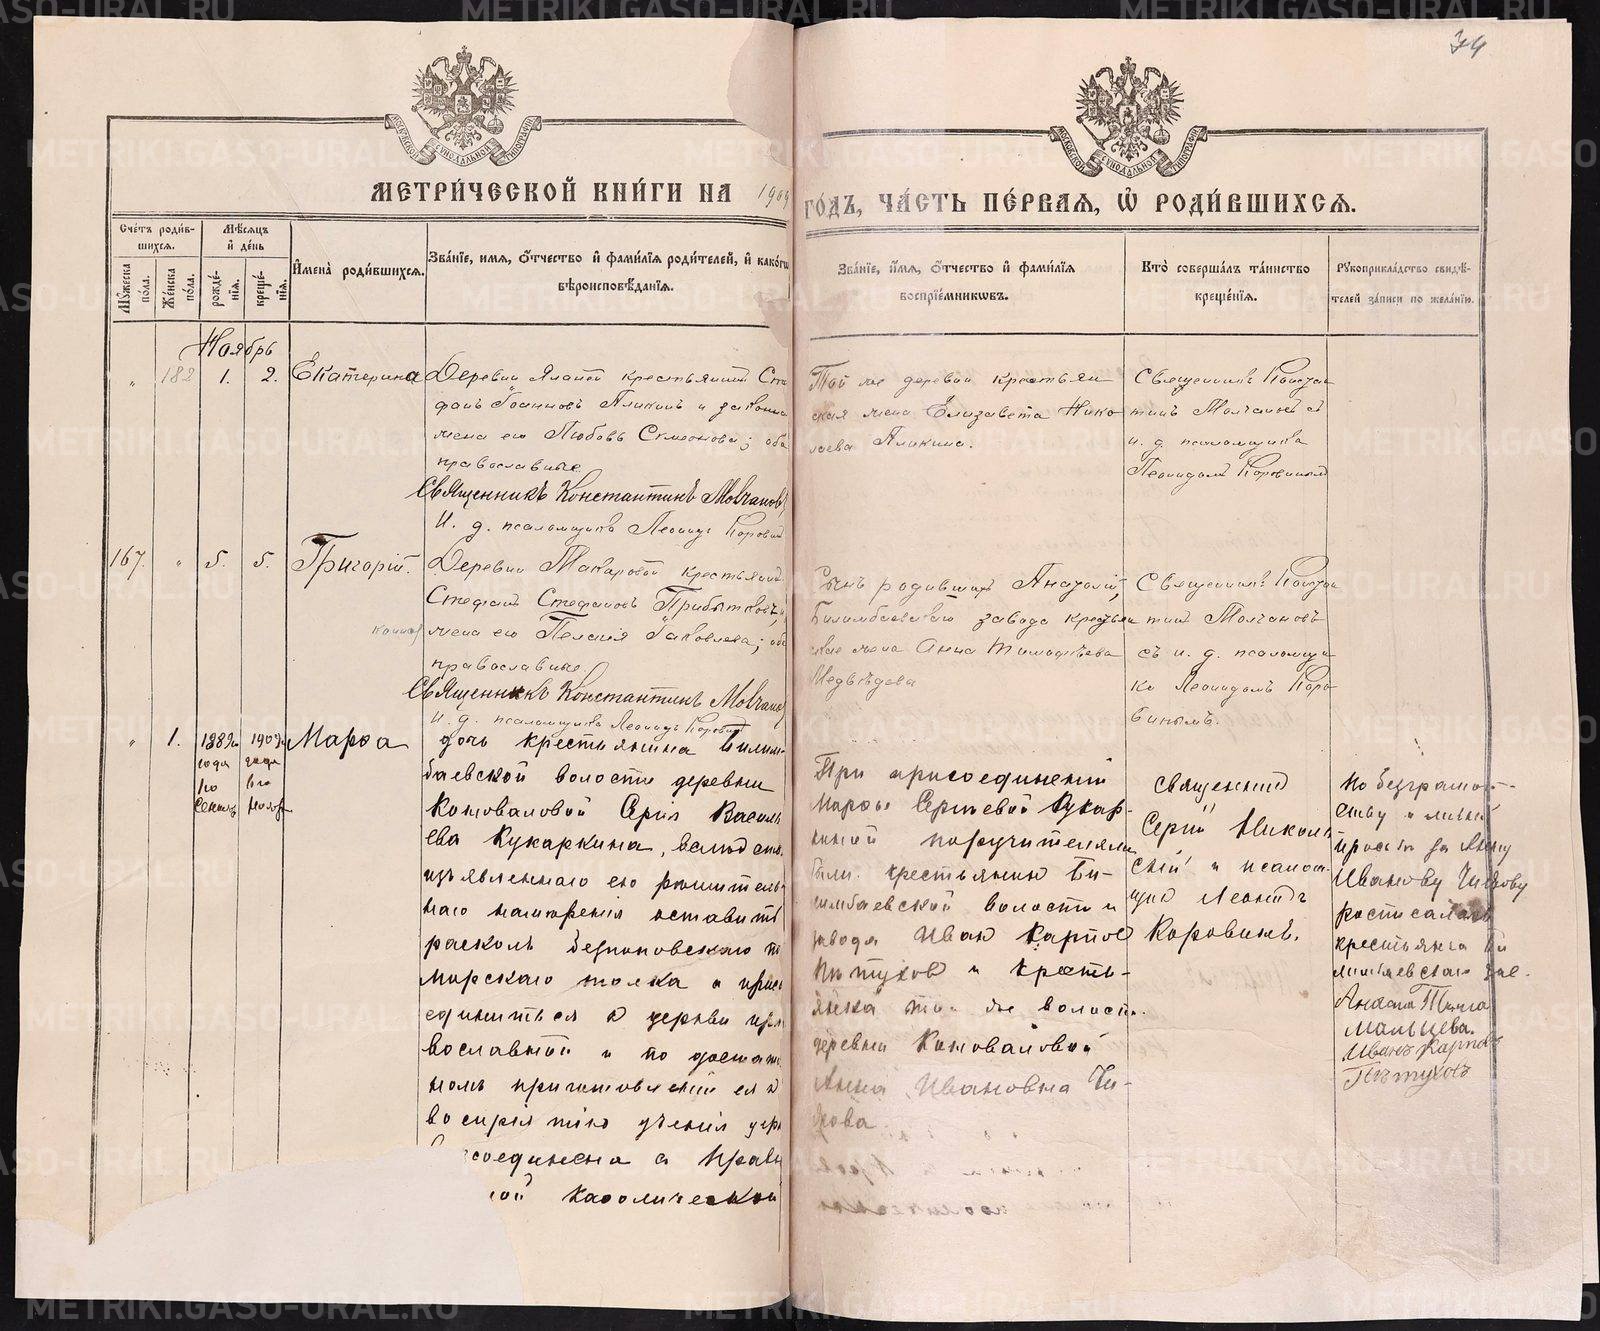 34
МОСКОВСКОЙ СѴНОДАЛЬНОЙ ТИПОГРАФІИ
МОСКОВСКОЙ СѴНОДАЛЬНОЙ ТИПОГРАФІИ
МЕТРИ́ЧЕСКОЙ КНИ́ГИ НА 1909
ГО́ДЪ, ЧА́СТЬ ПЕ́РВАЯ, Ѽ РОДИ́ВШИХСЯ.
Сче́тъ роди́в-
шихся.
Мѣ́сяцъ
и҆ де́нь
Му́жеска по́ла.
Же́нска по́ла.
рожде́нїя.
креще́нїя.
И҆мена̀ роди́вшихся.
Зва́нїе, имя, ѻ҆́тчество и҆ фами́лїя роди́телей, и҆ како́гѡ
вѣроисповѣ́данїя.
Зва́нїе, и҆́мя, ѻ҆́тчество и҆ фами́лїя
воспрїе́мникѡвъ.
Кто̀ соверша́лъ та́инство
креще́нїя.
Рꙋкоприкла́дство свидѣ́-
телей за́писи по жела́нїю.
Ноябрь
„ 182 1. 2. Екатерина
Деревни Ялапой крестьянинъ Сте
фанъ Іоанновъ Аликинъ и законна
жена его Любовь Симеонова; оба
православные.
Священникъ Константинъ Молчановъ
И. д. псаломщика Леонидъ Коровин
Той же деревни крестьян
ская жена Елизавета Нико
лаева Аликина.
Священникъ Констан
тинъ Молчановъ съ
и. д. псаломщика
Леонидомъ Коровиным
167. „ 5. 5. Григорій.
Деревни Макаровой крестьянинъ
Стефанъ Стефановъ Прибытковъ и
жена его Пелагія Іаковлева; оба
православные.
Священникъ Константинъ Молчанов
И. д. псаломщика Леонидъ Коровин
Сынъ родившихъ Анатолій,
Билимбаевскаго завода крестьян
ская жена Анна Тимофѣева
Медвѣдева
Священникъ Констан
тинъ Молчановъ
съ и. д. псаломщи
ка Леонидомъ Коро
винымъ.
„ 1. 1889 года 1909 года Марѳа
дочь крестьянина Билим-
баевской волости деревни
Коноваловой Сергія Василь
ева Кукаркина, вследствіе
изъявленнаго ею рѣшитель
наго намѣренія оставить
расколъ безпоповскаго по
морскаго толка и присо
единиться к церкви пра
вославной и по достаточ
номъ приготовленіи ея к
воспріятію ученія церк
соединена к Прав
ной Каѳолической
При присоединеніи
Марѳы Сергіевой Кукар-
киной поручителями
были: крестьянин Би-
лимбаевской волости и
завода Иван Карпов
Пѣтухов и кресть-
янка той же волости
деревни Коноваловой
Анна Ивановна Чи-
рова
Священник
Сергій Николь
скій и псалом-
щик Леонидъ
Коровинъ.
По безграмот-
ству и личной
просьбѣ за Анну
Иванову Чирову
росписалась
крестьянка Би
лимбаевскаго зав.
Мальцева.
Иванъ Карпов
Пѣтуховъ
METRIKI.GASO-URAL.RU